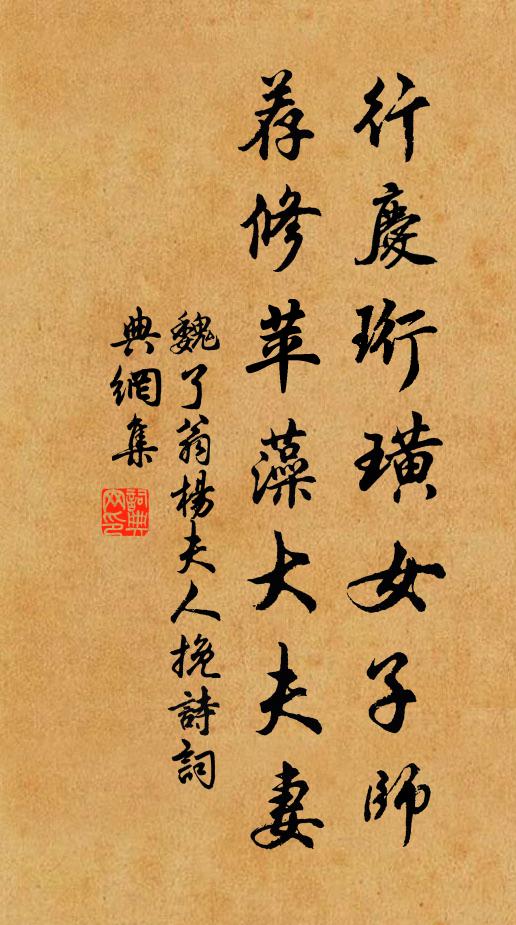 行慶珩璜女子師
荐修苹藻大夫妻
魏了翁楊夫人挽詩詞
典網集
詞典網印